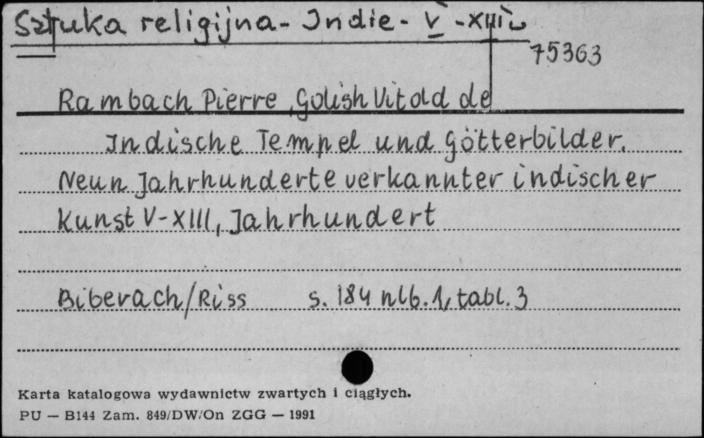 Sztuka religijna - Indie - V - XIII w
75363
Rambach Pierre, Golish Vitold de
Indische Tempel und Götterbilder.
Neun Jahrhunderte verkannter indischer
Kunst V-XIII, Jahrhundert
Biberach/Riss s. 184 nlb. 1, tabl. 3
Karta katalogowa wydawnictw zwartych i ciągłych.
PU — B144 Zam. 849/DW/On ZGG — 1991